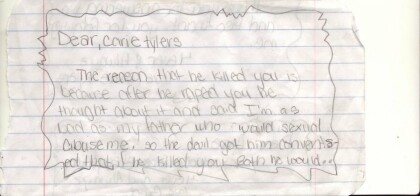 Dear, Carie tylers
The reason that he killed you is
because after he raped you he
thought about it and said I'm as
bad as my father who would sexual
abuse me, so the devil got him
that if he killed you he would..